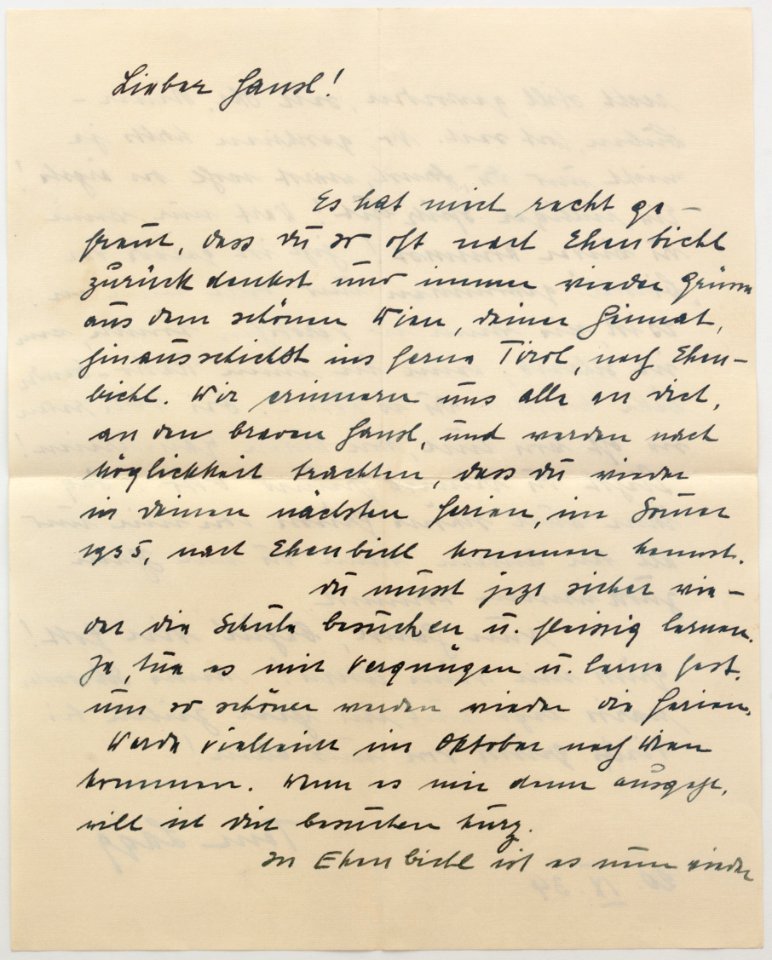 Lieber Hansl!
Es hat mich recht ge-
freut, dass du so oft nach Ehenbichl
zurück denkst und immer wieder Grüsse
aus dem schönen Wien, deiner Heimat,
hinausschickst ins ferne Tirol, nach Ehen-
bichl. Wir erinnern uns alle an dich,
an den braven Hansl, und werden nach
Möglichkeit trachten, dass du wieder
in deinen nächsten Ferien, im Sommer
1935, nach Ehenbichl kommen kannst.
Du musst jetzt sicher wie-
der die Schule besuchen u. fleissig lernen.
Ja, tue es mit Vergnügen u. lerne fest,
um so schöner werden wieder die Ferien.
Werde vielleicht im Oktober nach Wien
kommen. Wenn es mir dann ausgeht,
will ich dich besuchen kurz.
In Ehenbichl ist es nun wieder